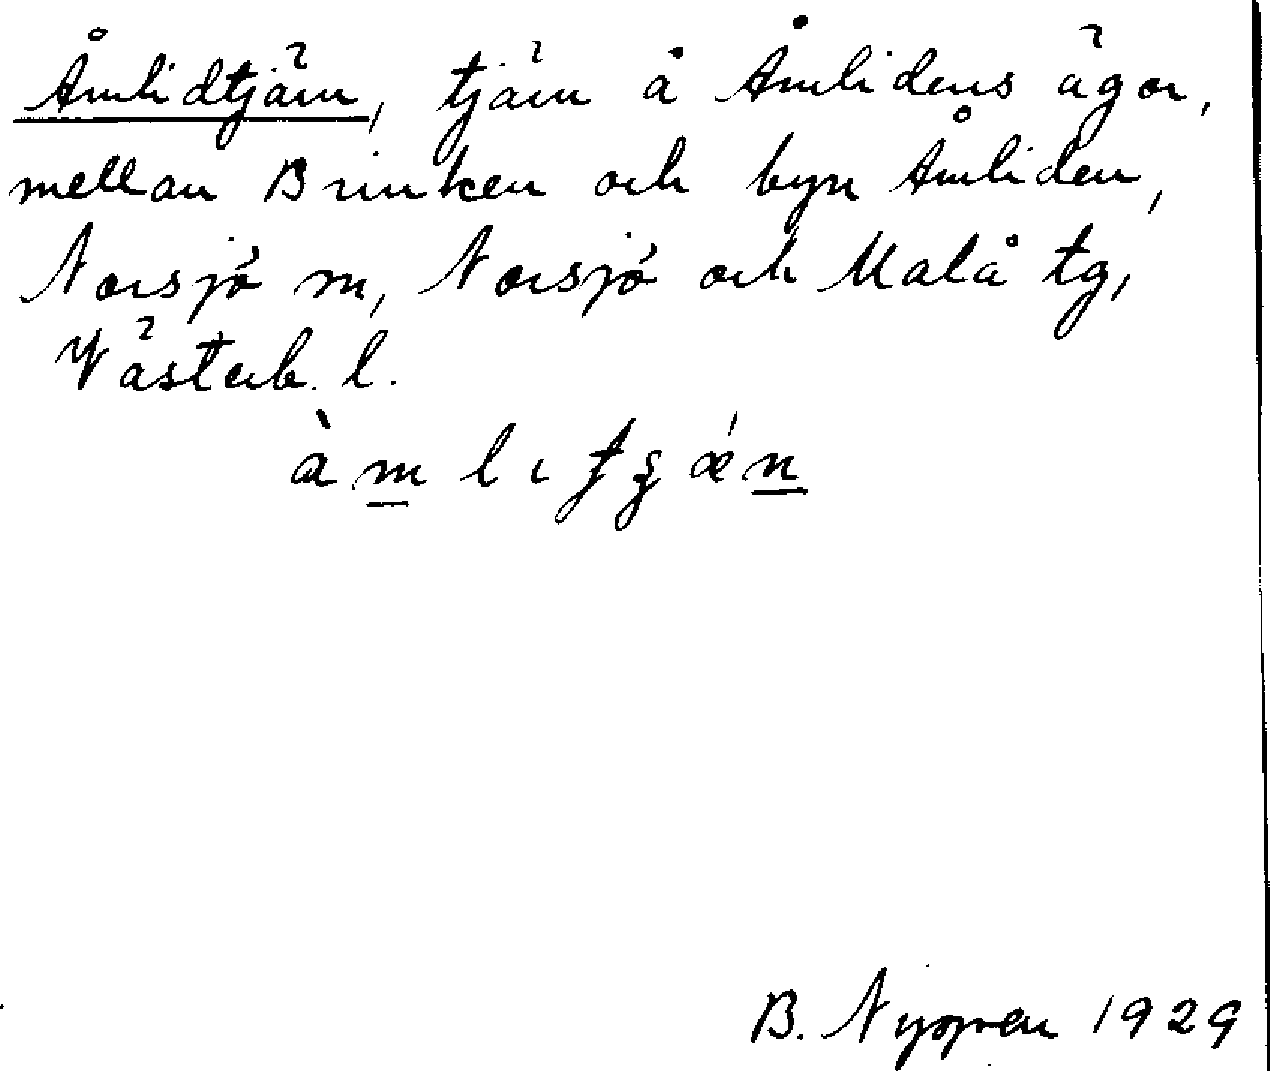 Åmlidtjärn, tjärn å Åmlidens ägor,
mellan Brinken och byn Åmliden,
Norsjö sn, Norsjö och Malå tg,
Västerb. l.
B. 1929